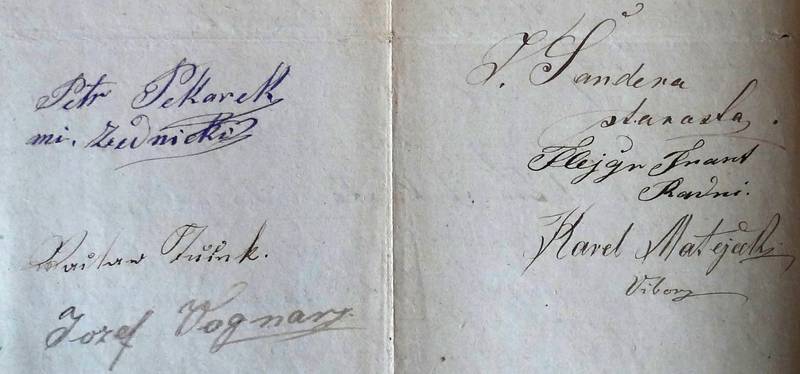 Petr Pekarek
mi. Zednicki
Josef Vognar
J. Šandera
starosta.
Flejgr Frant
Radni.
Karel Matejček
Vibor